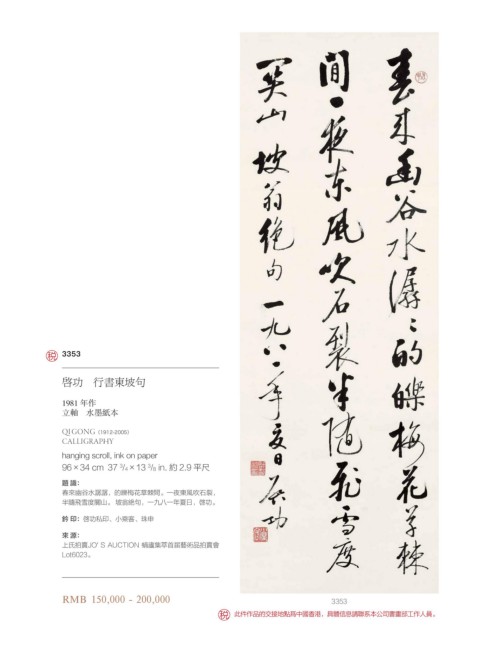 春來幽谷水潺潺的皪梅花草棘
間一夜東風吹石裂半隨飛雪度
關山 坡翁絕句 一九八一年夏日 啓功
税 3353
啓功 行書東坡句
1981 年作
立軸 水墨紙本
QI GONG (1912-2005)
CALLIGRAPHY
hanging scroll, ink on paper
96 × 34 cm 37 3/4 × 13 3/8 in. 約 2.9 平尺
題識：
春來幽谷水潺潺，的皪梅花草棘間。一夜東風吹石裂，
半隨飛雪度關山。坡翁絕句，一九八一年夏日，啓功。
鈐印：啓功私印、小乘客、珠申
來源：
上氏拍賣JO' S AUCTION 蝸廬集萃首屆藝術品拍賣會
Lot6023。
RMB 150,000 - 200,000
3353
税 此件作品的交接地點爲中國香港，具體信息請聯系本公司書畫部工作人員。